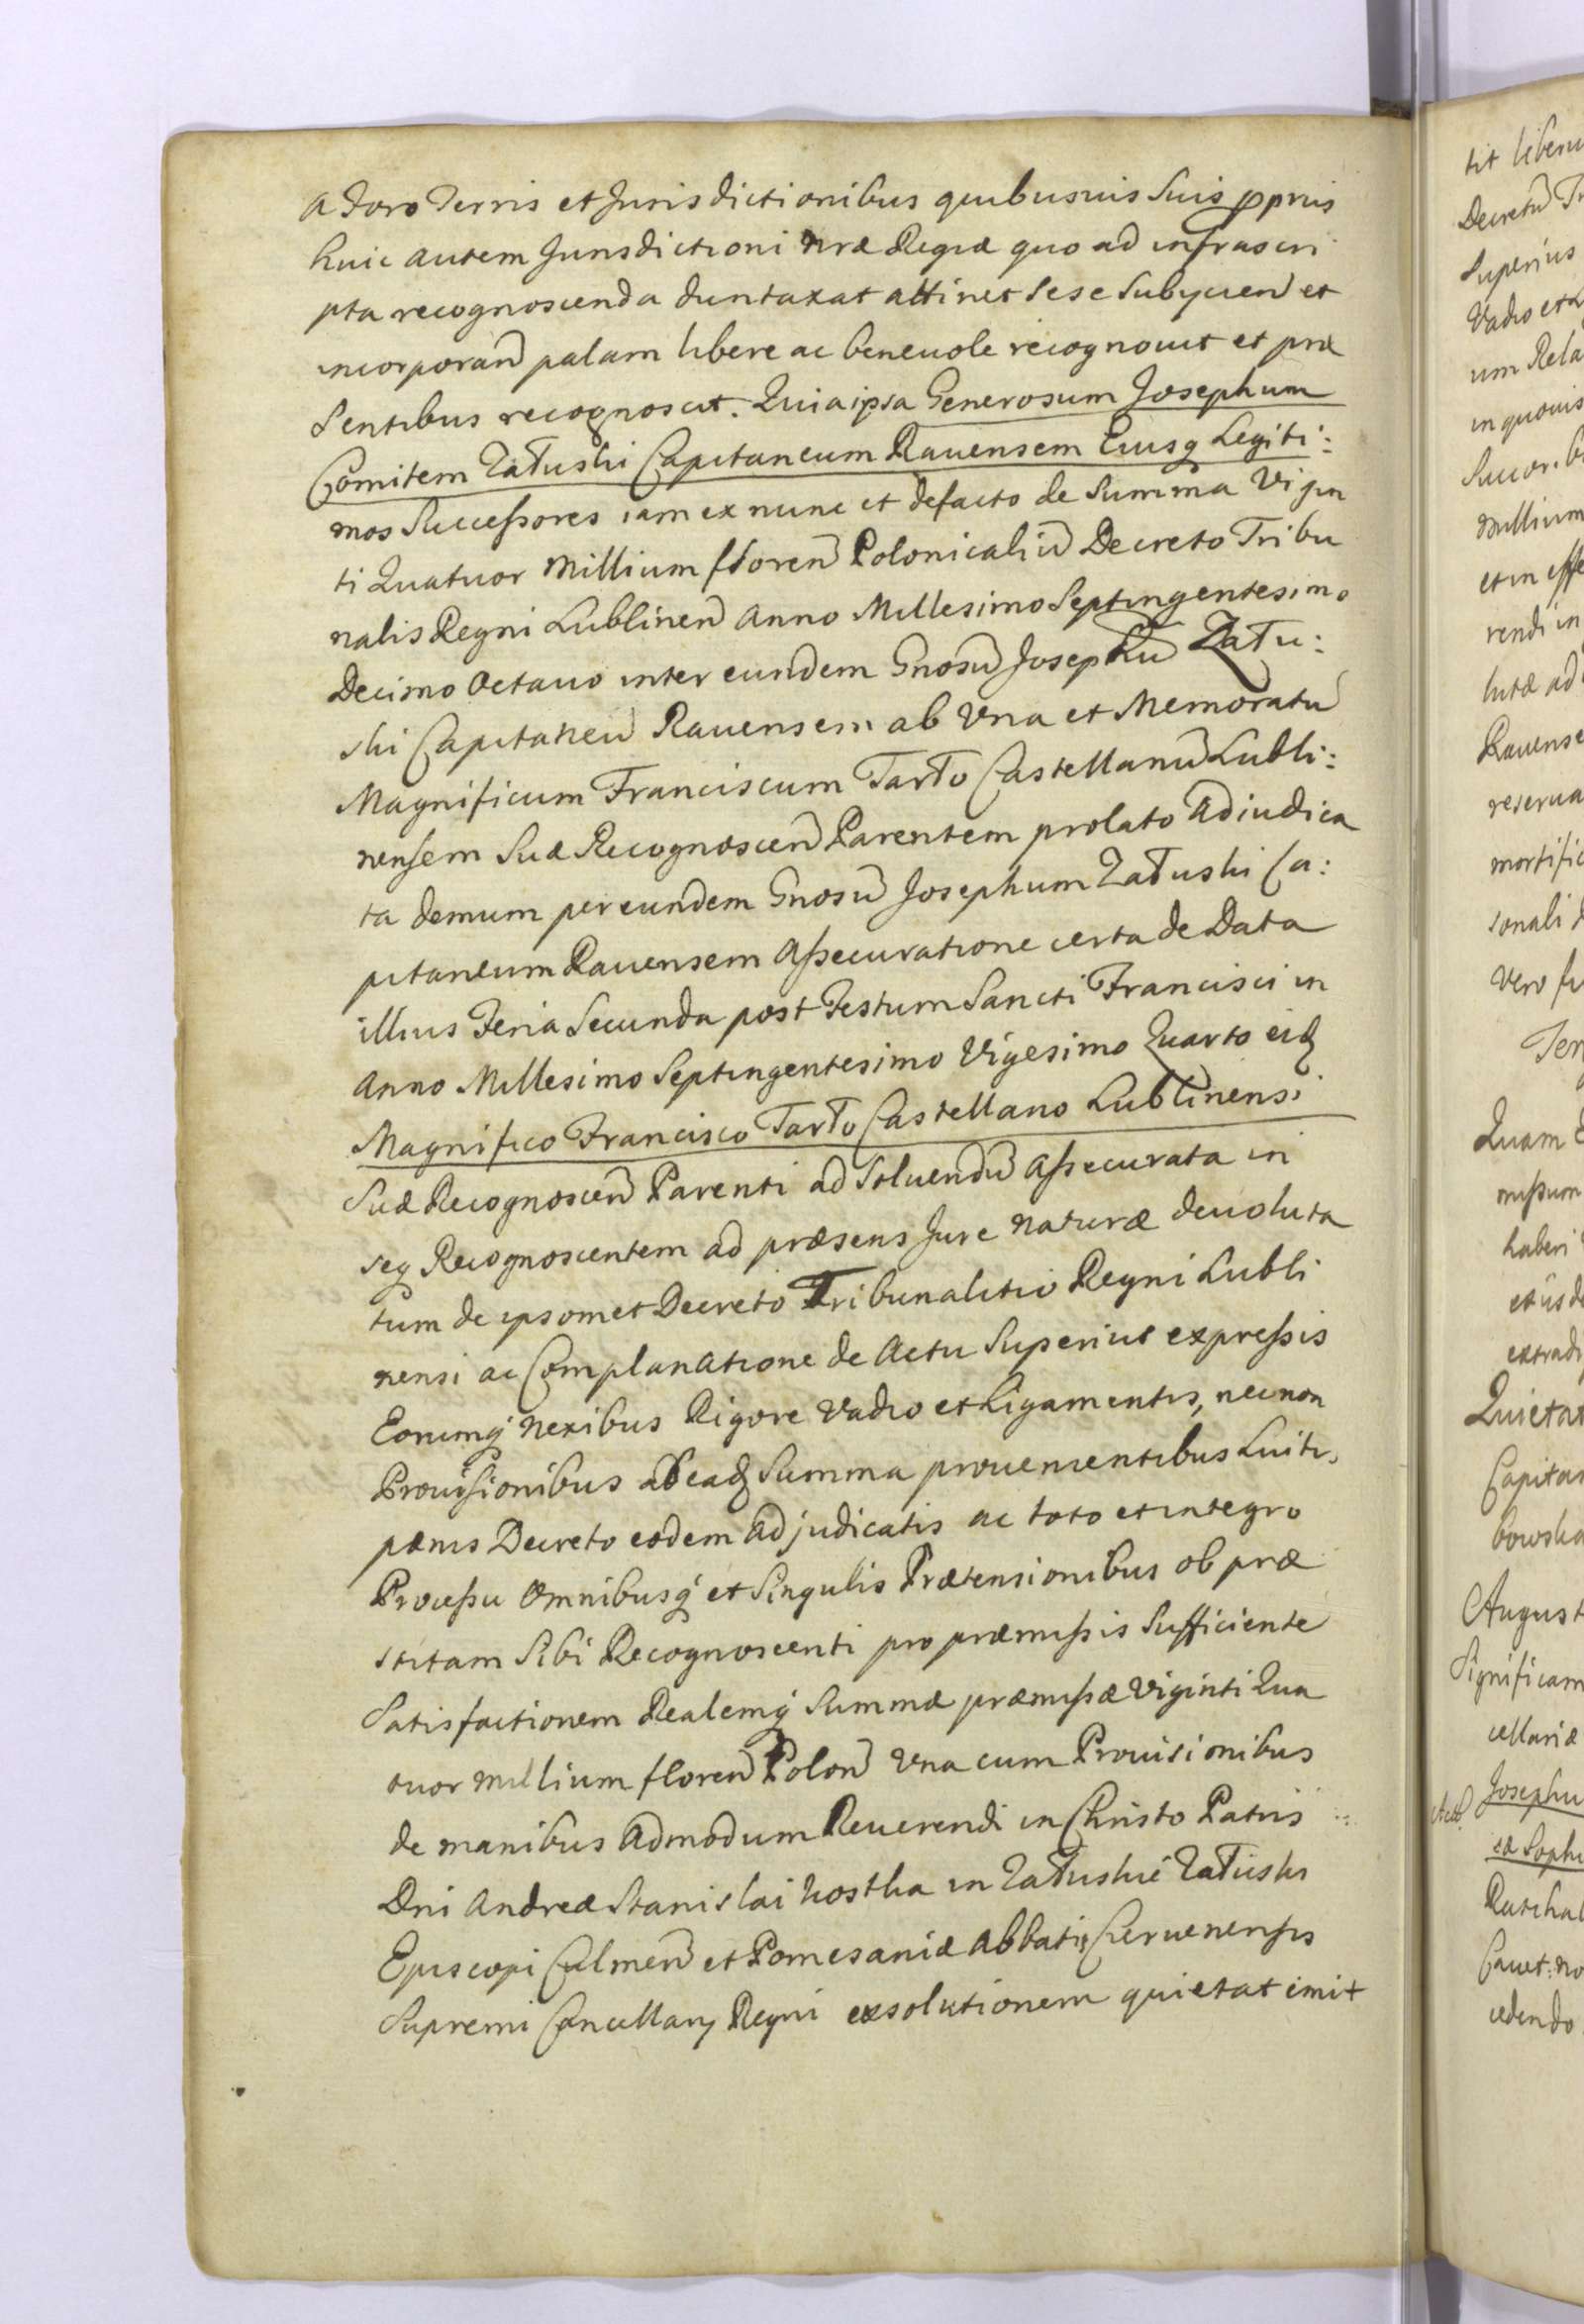 a Foro Terris et Jurisdictionibus quibusuis Suis ppriis
huic autem Jurisdictioni nræ Regiæ quo ad infrascri
pta recognoscenda duntaxat attinet Sese Subycien et
incorporan palam libere ac beneuole recognouit et præ
Sentibus recognoscit. Quia ipsa Generosum Josephum
Comitem Załuski Capitaneum Rauensem Eiusq Legiti:
mos Successores iam ex nunc et defacto de Summa Vigin
ti Quatuor Millium floren Polonicaliu Decreto Tribu
nalis Regni Lublinen Anno Millesimo Septingentesimo
Decimo Octauo inter eundem Gnosu Josephu Zału:
ski Capitaneu Rauensem ab Vna et Memoratu
Magnificum Franciscum Tarło Castellanu Lubli:
nensem Suæ Recognoscen Parentem prolato Adiudica
ta demum per eundem Gnosu Josephum Załuski Ca:
pitaneum Rauensem Assecuratione certa de Data
illius Feria Secunda post Festum Sancti Francisci in
Anno Millesimo Septingentesimo Vigesimo Quarto eid
Magnifico Francisco Tarło Castellano Lublinensi
Suæ Recognoscen Parenti ad Soluendu Assecurata in
seq Recognoscentem ad præsens Jure naturæ deuoluta
tum de ipsomet Decreto Tribunalitio Regni Lubli
nensi ac Complanatione de Actu Superius expressis
Eorumq nexibus Rigore Vadio et Ligamentis, necnon
Prouisionibus ab ead Summa prouenientibus Luitis,
pænis Decreto eodem adjudicatis ac toto et integro
Processu Omnibusq et Singulis Prætensionibus ob præ
stitam Sibi Recognoscenti pro præmissis Sufficiente
Satisfactionem Realemq Summæ præmissæ Viginti Qua
tuor millium floren Polon Vna cum Prouisionibus
de manibus Admodum Reuerendi in Christo Patris
Dni Andreæ Stanislai Kostka in Załuskie Załuski
Episcopi Culmen et Pomesaniæ Abbatis Czeruenensis
Supremi Cancellary Regni exsolutionem quietat emit
tit liberu
Decretu Tr
Superius
Vadio et L
um Rela
in quouis
millium
et in effe
rendi in
lutæ ad
Rauense
reserua
mortific
sonali
Vero
Ter
Quam
missum
haberi
extradi
Quietat
Capita
bowska
August
Significam
cellariæ
Josephu
sæ Sophi
cedendo